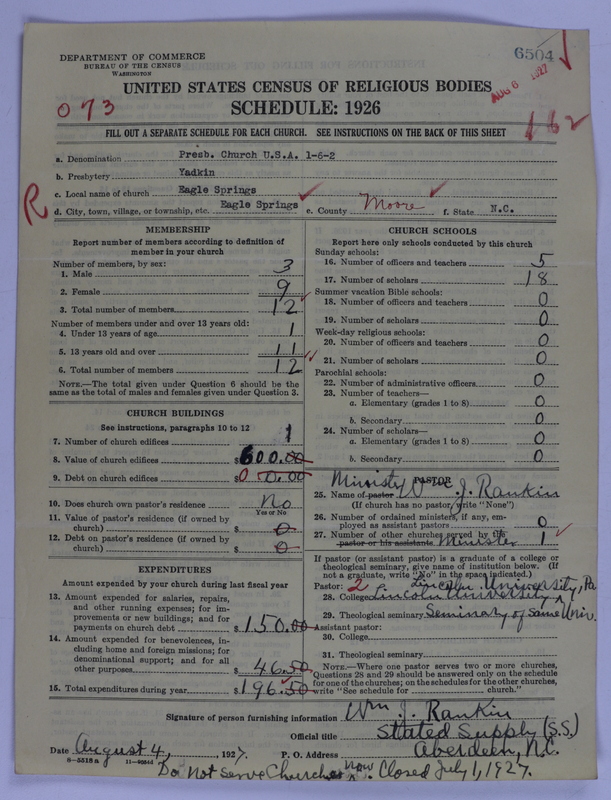 6504
DEPARTMENT OF COMMERCE
BUREAU OF THE CENSUS
WASHINGTON
AUG 6 1927
UNITED STATES CENSUS OF RELIGIOUS BODIES
073
SCHEDULE: 1926
162
FILL OUT A SEPARATE SCHEDULE FOR EACH CHURCH. SEE INSTRUCTIONS ON THE BACK OF THIS SHEET
a. Denomination Presb. Church U.S.A. 1-6-2
b. Presbytery Yadkin
c. Local name of church Eagle Springs
R
d. City, town, village, or township, etc. Eagle Springs e. County Moore f. State N.C.
MEMBERSHIP
Report number of members according to definition of
member in your church
Number of members, by sex:
1. Male 3
2. Female 9
3. Total number of members 12
Number of members under and over 13 years old:
4. Under 13 years of age 1
5. 13 years old and over 11
6. Total number of members 12
NOTE.—The total given under Question 6 should be
same as the total of males and females given under Question 3.
CHURCH BUILDINGS
See instructions, paragraphs 10 to 12
7. Number of church edifices 1
8. Value of church edifices $ 600.00
9. Debt on church edifices $ 0 0.00
10. Does church own pastor's residence No
Yes or No
11. Value of pastor's residence (if owned by
church) $ 0
12. Debt on pastor's residence (if owned by
church) $ 0
EXPENDITURES
Amount expended by your church during last fiscal year
13. Amount expended for salaries, repairs,
and other running expenses; for im-
provements or new buildings; and for
payments on church debt $ 150.00
14. Amount expended for benevolences, in-
cluding home and foreign missions; for
denominational support; and for all
other purposes 46.50
15. Total expenditures during year $ 196.50
CHURCH SCHOOLS
Report here only schools conducted by this church
Sunday schools:
16. Number of officers and teachers 5
17. Number of scholars 18
Summer vacation Bible schools:
18. Number of officers and teachers 0
19. Number of scholars 0
Week-day religious schools:
20. Number of officers and teachers 0
21. Number of scholars 0
Parochial schools:
22. Number of administrative officers 0
23. Number of teachers—
a. Elementary (grades 1 to 8) 0
b. Secondary 0
24. Number of scholars—
a. Elementary (grades 1 to 8) 0
b. Secondary 0
PASTOR
25. Name of pastor Wm J. Rankin
(If church has no pastor, write "None")
26. Number of ordained ministers, if any, em-
ployed as assistant pastors 0
27. Number of other churches served by the
pastor or his assistants Minister 1
If pastor (or assistant pastor) is a graduate of a college or
theological seminary, give name of institution below. (If
not a graduate, write "No" in the space indicated.)
Pastor: 2 Lincoln University, Pa
28. College Lincoln University
29. Theological seminary Seminary of Same Univ.
Assistant pastor:
30. College
31. Theological seminary
NOTE.—Where one pastor serves two or more churches,
Questions 28 and 29 should be answered only on the schedule
for one of the churches; on the schedules for the other churches,
write "See schedule for church."
Signature of person furnishing information Wm J. Rankin
Official title Stated Supply (S.S.)
Date August 4, 1927. P. O. Address Aberdeen, N.C.
8-5518a 11-9594d
Do Not Serve Church now. Closed July 1, 1927.